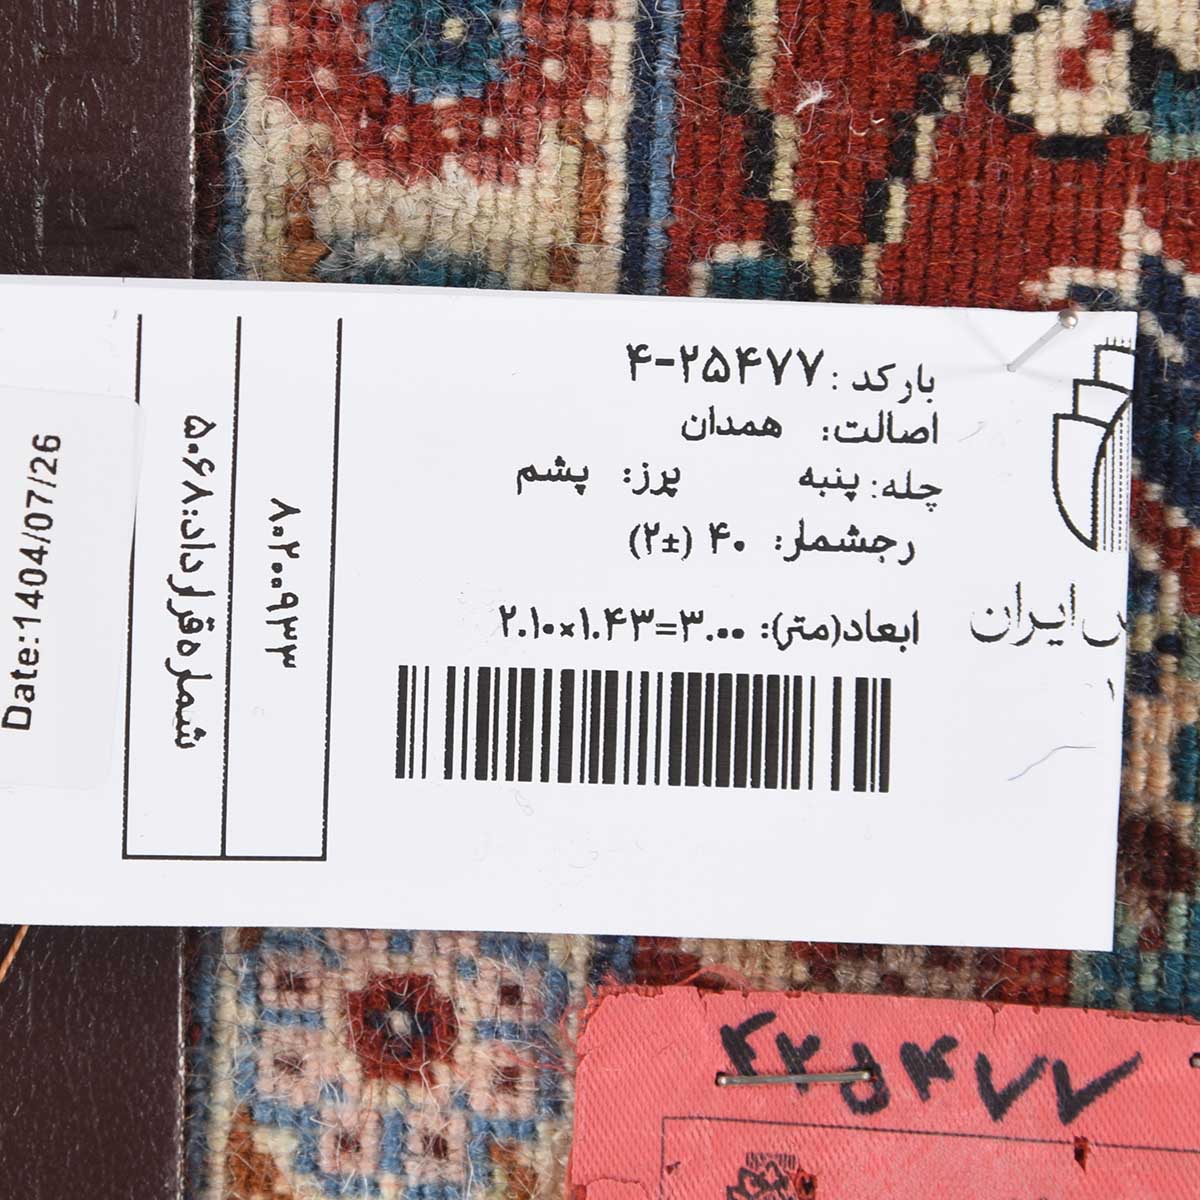 بارکد: ۴-۲۵۴۷۷
اصالت: همدان
چله: پنبه پرز: پشم
رجشمار: ۴۰ (±۲)
ابعاد(متر): ۲.۱۰×۱.۴۳=۳.۰۰
ایران
۸۰۲۰۰۹۳۳
شماره قرارداد: ۵۰۶۸
Date:1404/07/26
۴۲۵۴۷۷